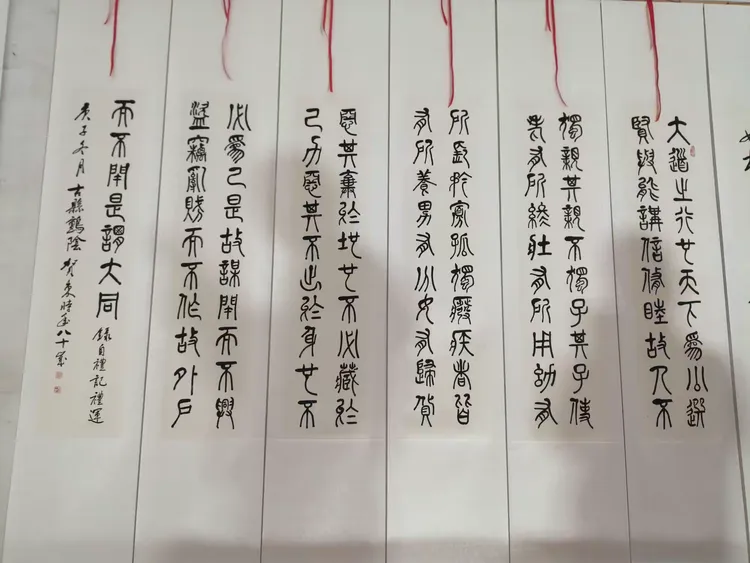 大道之行也天下為公選
賢與能講信修睦故人不
獨親其親不獨子其子使
老有所終壯有所用幼有
所長矜寡孤獨廢疾者皆
有所養男有分女有歸貨
惡其棄於地也不必藏於
己力惡其不出於身也不
必為己是故謀閉而不興
盜竊亂賊而不作故外戶
而不閉是謂大同
錄自禮記禮運
庚子冬月古縣鸇陰賀八十歲